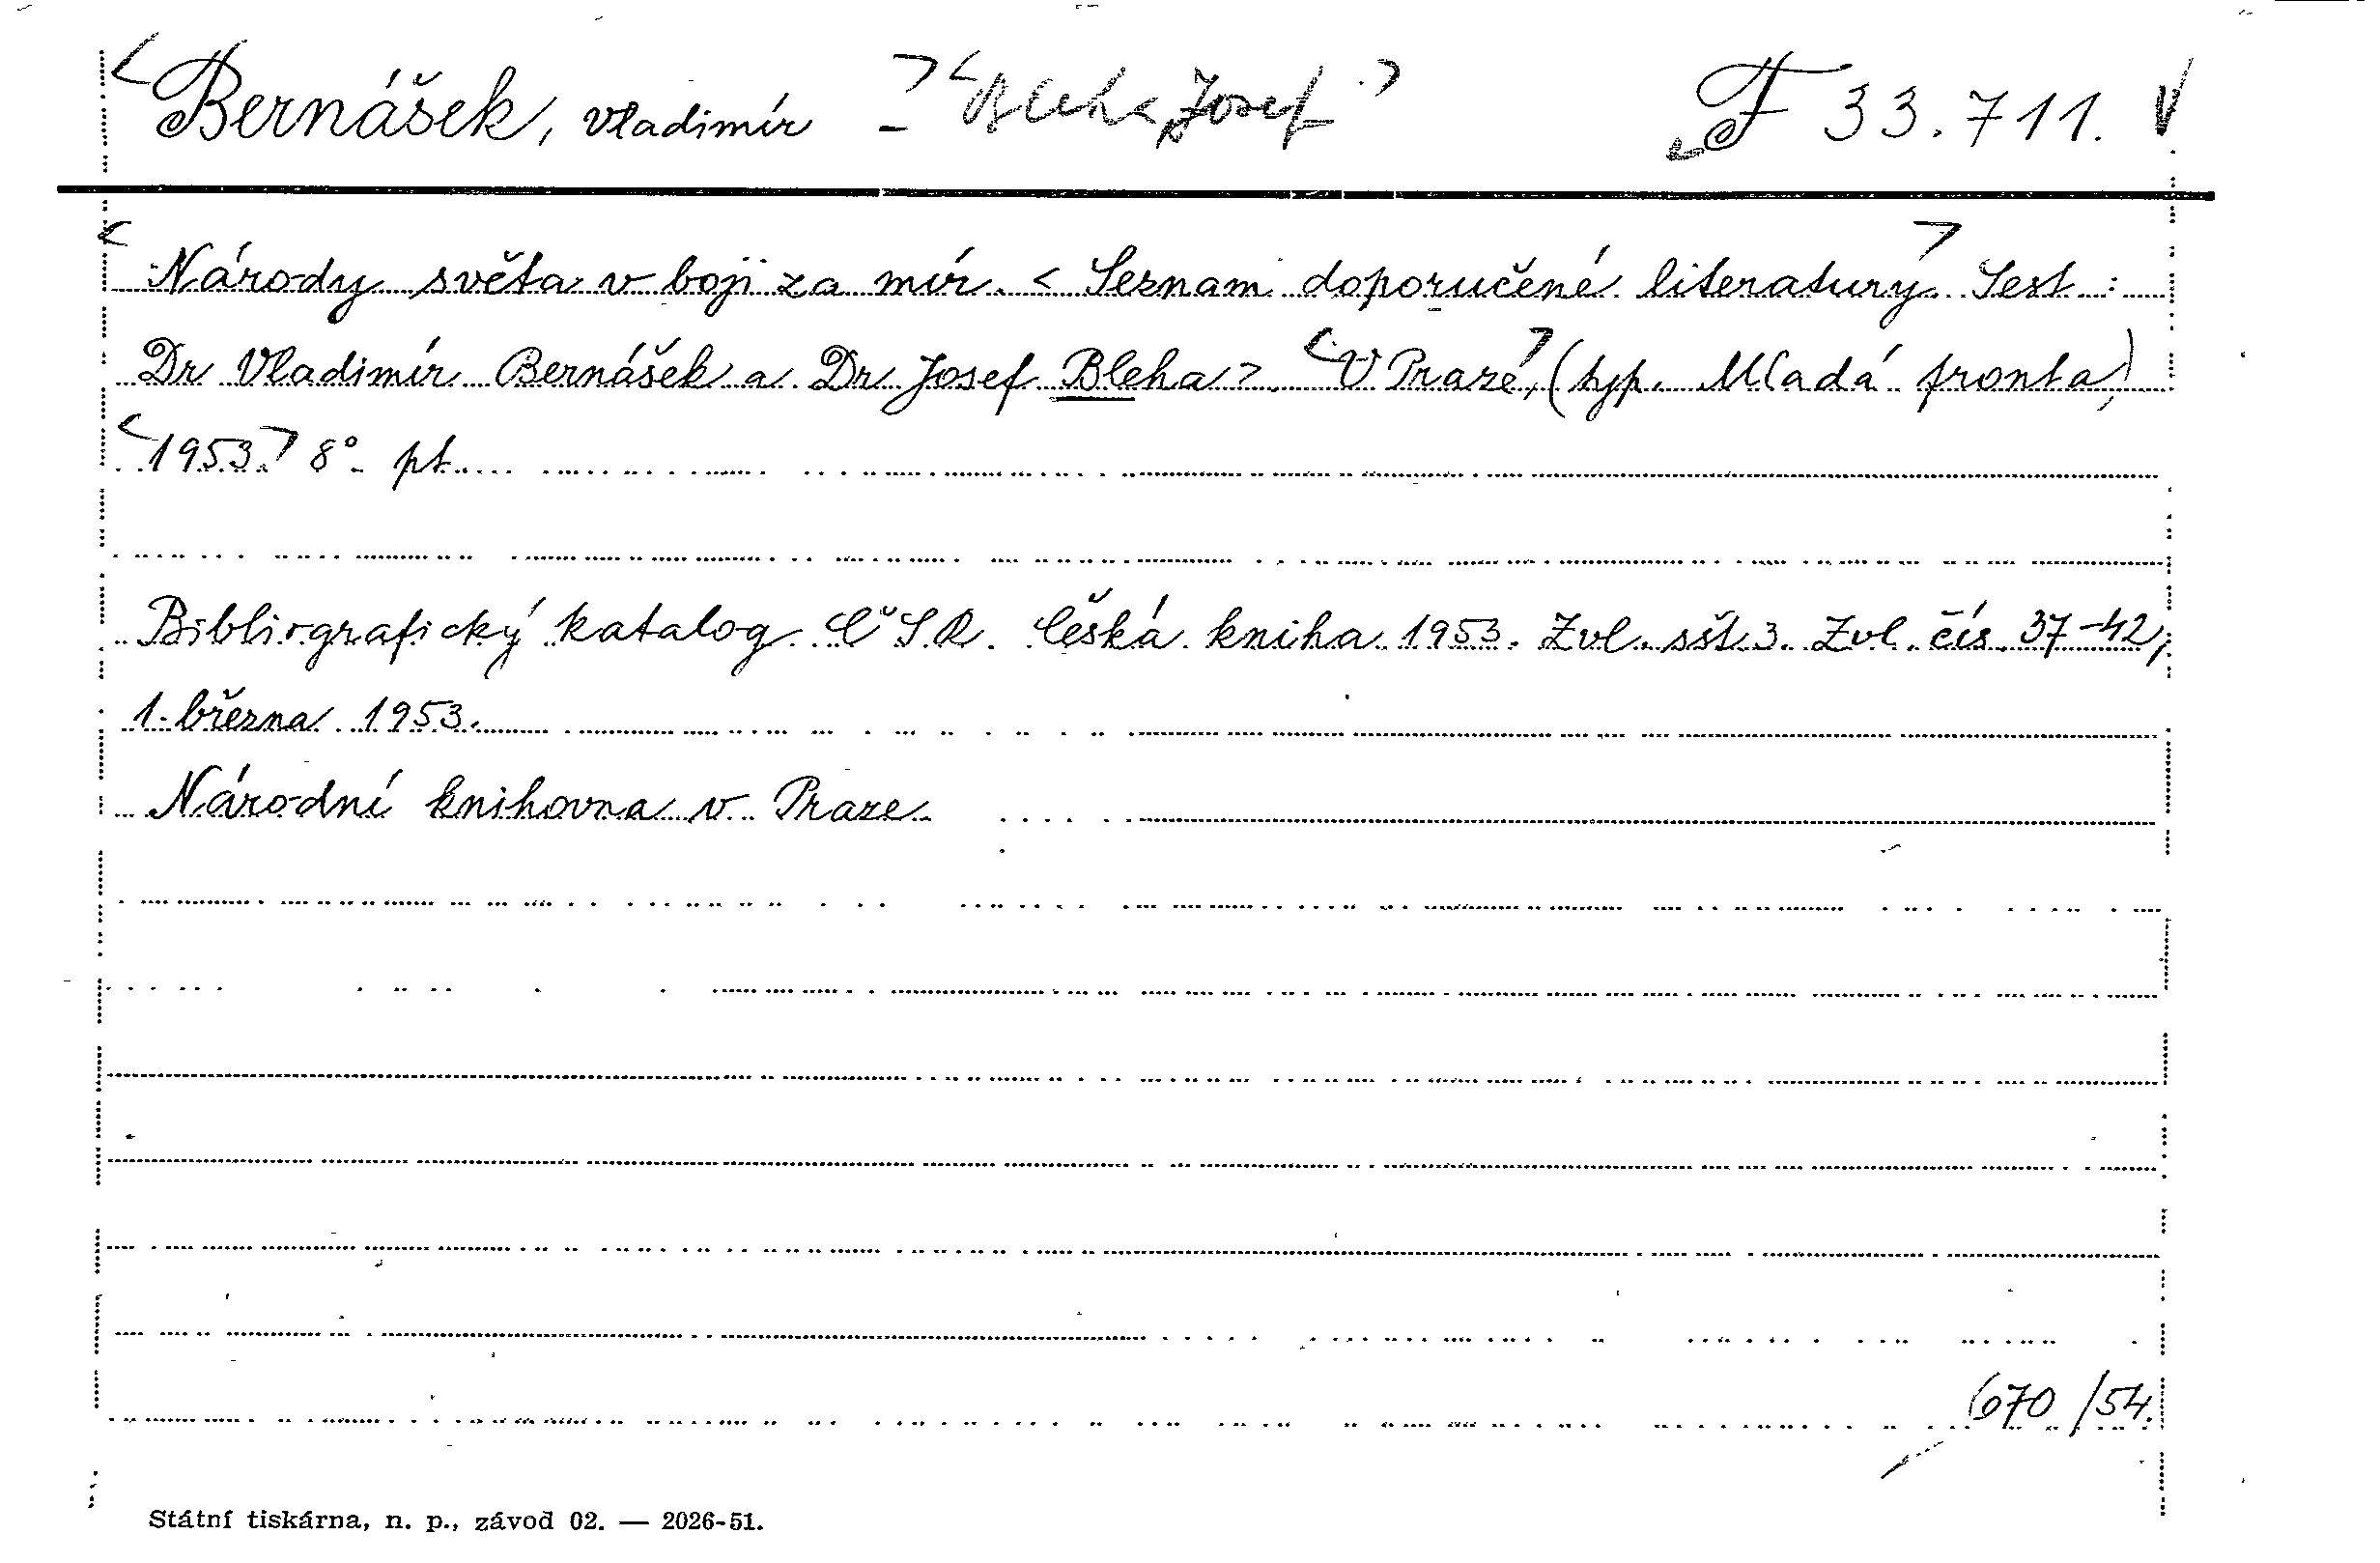 <Bernášek, Vladimír> - <Bleha, Josef> F 33.711.
<Národy světa v boji za mír. < Seznam doporučené literatury> Sest:
Dr Vladimír Bernášek a Dr Josef Bleha>. <V Praze>, (typ. Mladá fronta)
<1953> 8° pt.
Bibliografický katalog ČSR. Česká kniha 1953. Zvl. seš. 3. Zvl. čís. 37-42,
1. března 1953.
Národní knihovna v Praze
670/54.
Státní tiskárna, n. p., závod 02. — 2026-51.